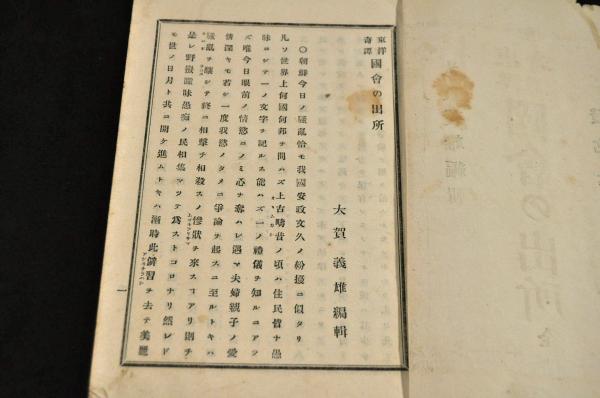 東洋
奇譚
國會の出所
大賀義雄編輯
〇朝鮮今日ノ騷亂恰モ我國安政文久ノ紛擾ニ似タリ
凡ソ世界上何國何邦ヲ問ハズ上古疇昔ノ頃ハ住民皆ナ愚
味ニシテ一ノ文字ヲ記ルス能ハズ一ノ禮儀ヲ知ルニアラ
ズ唯今日眼前ノ情慾ニノミ心ヲ奪ハレ遇マ夫婦親子ノ愛
情深キモ若シ一度我慾ノタメニ爭論ヲ起スニ至ルトキハ
騷亂ヲ釀シテ終ニ相擊チ相殺スノ慘狀ヲ來スコアリ則チ
是レ野蠻蒙昧愚痴ノ民相集マツテ爲ストコロナリ然レド
モ世ノ日月ト共ニ開ケ進ムトキハ漸時此習ヲ去テ美麗
一
出所